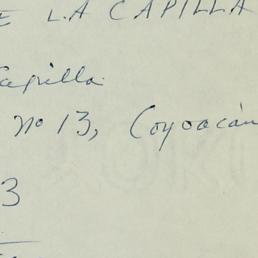 E LA CAPILLA
Capilla
nº 13, Coyoacán
3